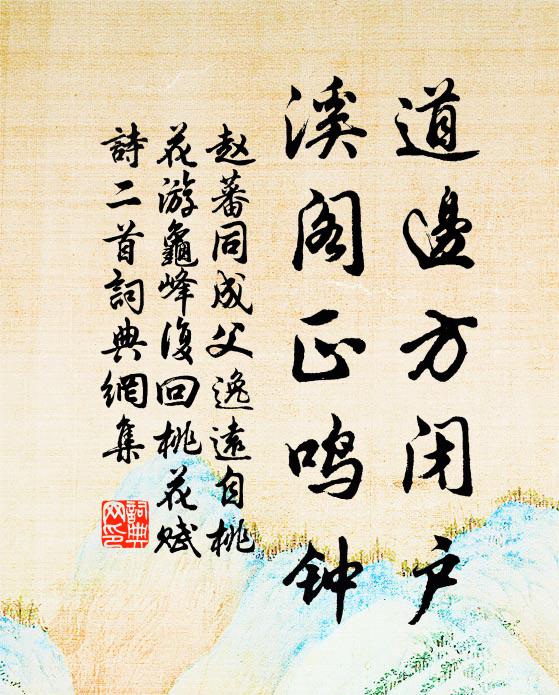 道邊方闭户
溪阁正鸣钟
赵蕃同成父逸遠自桃
花游龜峰復回桃花赋
詩二首詞典網集
詞典網印